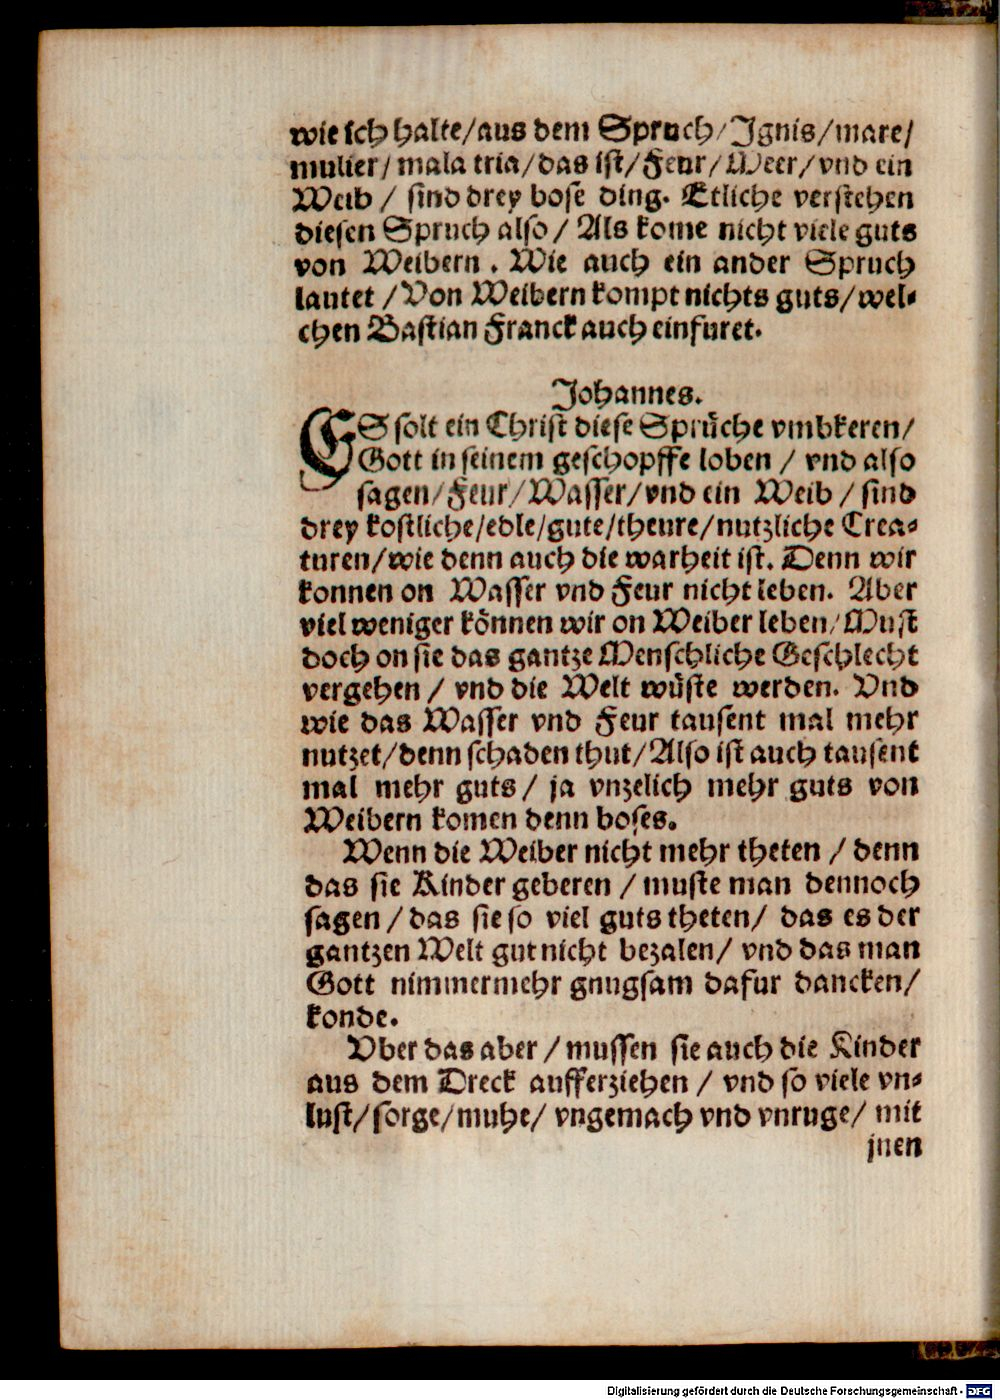 wie ich halte/aus dem Spruch/Ignis/mare/
mulier/mala tria/das ist/Feur/Meer/vnd ein
Weib / sind drey bose ding. Etliche verstehen
diesen Spruch also / Als kome nicht viele guts
von Weibern . Wie auch ein ander Spruch
lautet /Von Weibern kompt nichts guts/wel-
chen Bastian Franck auch einfuret.
Johannes.
ES solt ein Christ diese Sprůche vmbkeren/
Gott in seinem geschopffe loben / vnd also
sagen/Feur/Wasser/vnd ein Weib / sind
drey kostliche/edle/gute/theure/nutzliche Crea-
turen/wie denn auch die warheit ist. Denn wir
konnen on Wasser vnd Feur nicht leben. Aber
viel weniger können wir on Weiber leben/Must
doch on sie das gantze Menschliche Geschlecht
vergehen / vnd die Welt wůste werden. Vnd
wie das Wasser vnd Feur tausent mal mehr
nutzet/denn schaden thut/Also ist auch tausent
mal mehr guts / ja vnzelich mehr guts von
Weibern komen denn boses.
Wenn die Weiber nicht mehr theten / denn
das sie Kinder geberen / muste man dennoch
sagen / das sie so viel guts theten/ das es der
gantzen Welt gut nicht bezalen/ vnd das man
Gott nimmermehr gnugsam dafur dancken/
konde.
Vber das aber / mussen sie auch die Kinder
aus dem Dreck aufferziehen / vnd so viele vn-
lust/sorge/muhe/ vngemach vnd vnruge/ mit
jnen
Digitalisierung gefördert durch die Deutsche Forschungsgemeinschaft - DFG